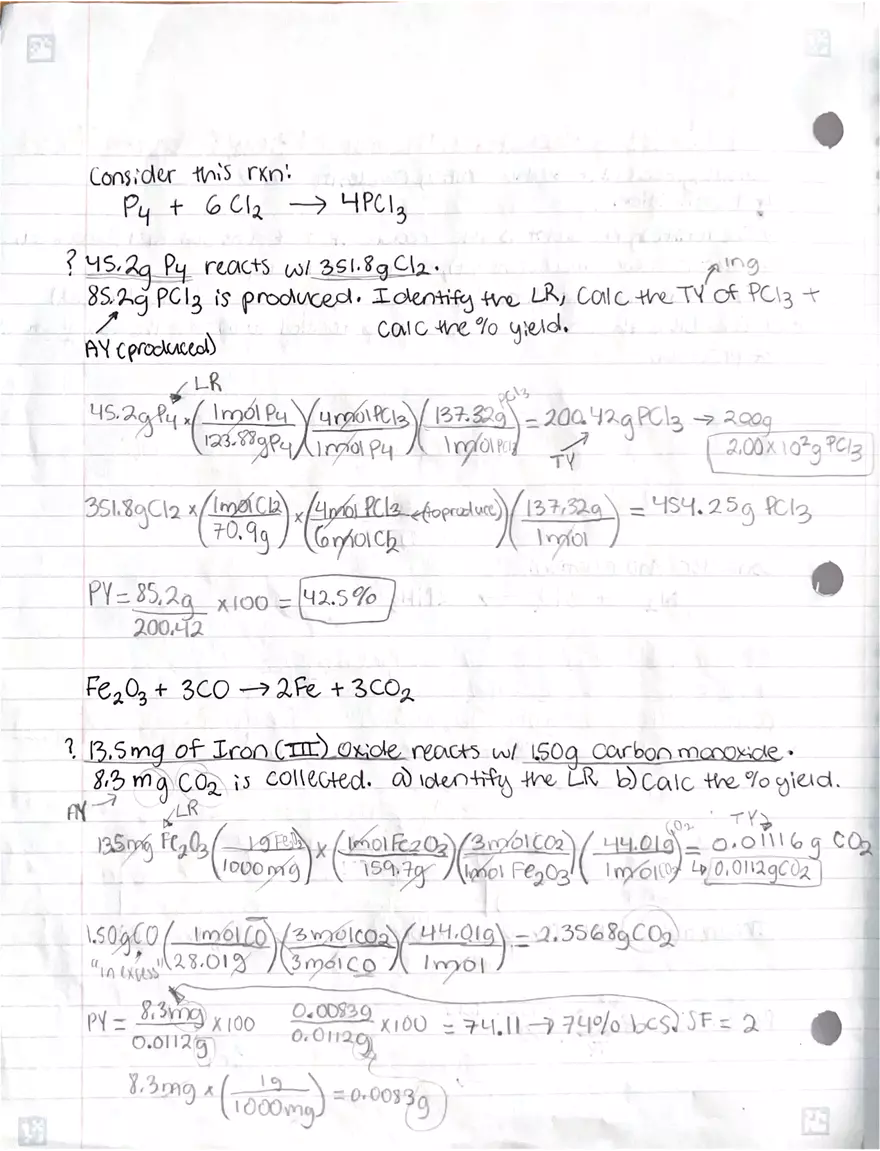 Consider this rxn:
P4 + 6Cl2 → 4PCl3
? 45.2g P4 reacts w/ 351.8g Cl2.
ing
85.2g PCl3 is produced. Identify the LR, Calc the TY of PCl3 +
calc the % yield.
AY (produced)
LR
45.2g P4 × (1mol P4 / 123.88g P4)(4mol PCl3 / 1mol P4)(137.32g PCl3 / 1mol PCl3) = 200.42g PCl3 → 200g
TY
2.00 × 10² g PCl3
351.8g Cl2 × (1mol Cl2 / 70.9g) × (4mol PCl3 ← (to produce) / 6mol Cl2)(137.32g / 1mol) = 454.25g PCl3
PY = 85.2g / 200.42 × 100 = 42.5%
Fe2O3 + 3CO → 2Fe + 3CO2
? 13.5mg of Iron (III) Oxide reacts w/ 1.50g carbon monoxide.
8.3 mg CO2 is collected. a) identify the LR b) Calc the % yield.
AY → LR
TY
13.5mg Fe2O3 (1g Fe2O3 / 1000mg) × (1mol Fe2O3 / 159.7g)(3mol CO2 / 1mol Fe2O3)(44.01g CO2 / 1mol CO2) = 0.01116g CO2
↳ 0.0112g CO2
1.50g CO (1mol CO / 28.01g)(3mol CO2 / 3mol CO)(44.01g / 1mol) = 2.3568g CO2
"in excess"
PY = 8.3mg / 0.0112g × 100 0.0083g / 0.0112g × 100 = 74.11 → 74% bcs SF = 2
8.3mg × (1g / 1000mg) = 0.0083g